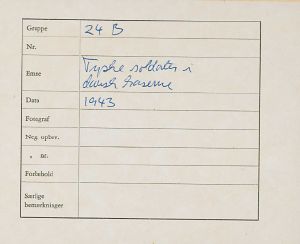 Gruppe 24 B
Nr.
Emne Tyske soldater i
dansk kaserne
Dato 1943
Fotograf
Neg. opbev.
" nr.
Forbehold
Særlige
bemærkninger